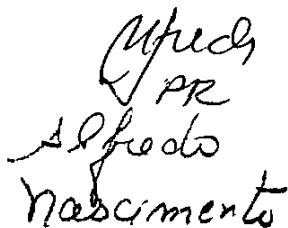 Alfredo
PR
Alfredo
Nascimento